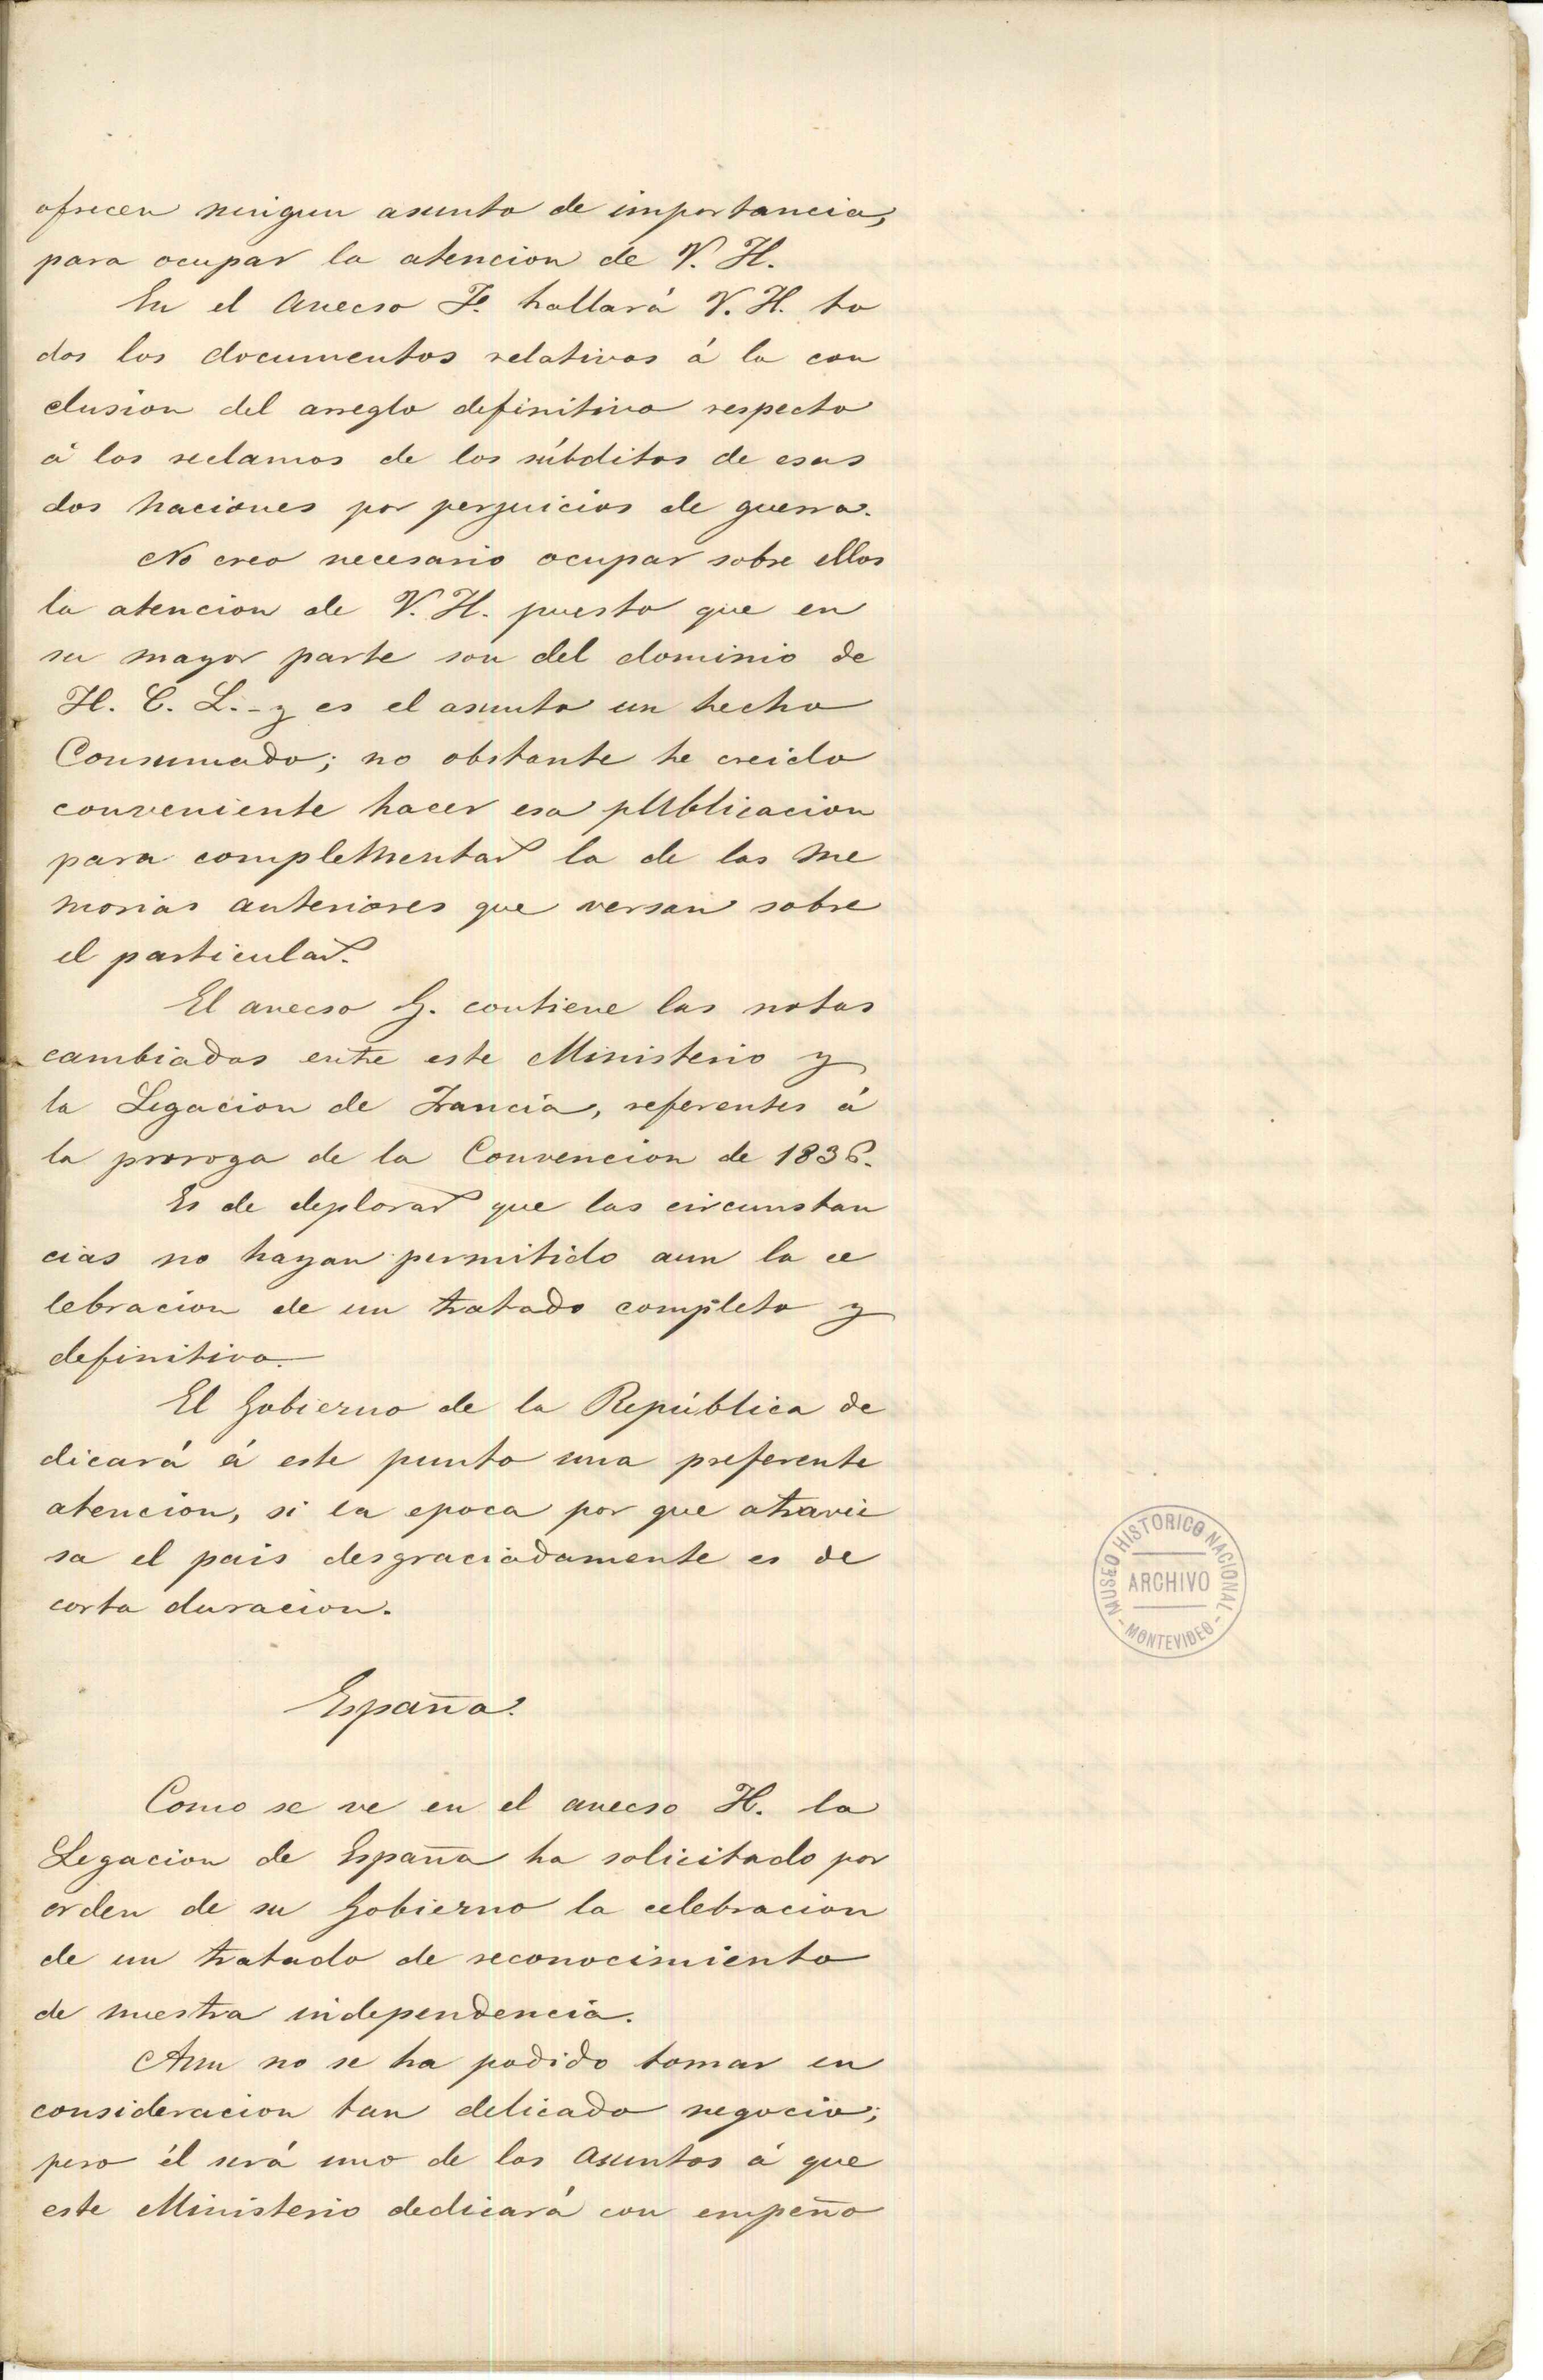 ofrecen ningun asunto de importancia,
para ocupar la atencion de V. H.
En el Anecso F. hallará V. H. to
dos los documentos relativos á la con
clusion del arreglo definitivo respecto
á los reclamos de los súbditos de esas
dos naciones por perjuicios de guerra.
No creo necesario ocupar sobre ellos
la atencion de V. H. puesto que en
su mayor parte son del dominio de
H. C. L. - y es el asunto un hecho
Consumado; no obstante he creido
conveniente hacer esa publicacion
para complementar la de las me
morias anteriores que versan sobre
el particular.
El anecso G. contiene las notas
cambiadas entre este Ministerio y
la Legacion de Francia, referentes á
la proroga de la Convencion de 1836.
Es de deplorar que las circunstan
cias no hayan permitido aun la ce
lebracion de un tratado completo y
definitivo.
El Gobierno de la República de
dicará á este punto una preferente
atencion, si la epoca por que atravie
sa el pais desgraciadamente es de
corta duracion.
España.
Como se ve en el anecso H. la
Legacion de España ha solicitado por
orden de su Gobierno la celebracion
de un tratado de reconocimiento
de nuestra independencia.
Aun no se ha podido tomar en
consideracion tan delicado negocio;
pero él será uno de los asuntos á que
este Ministerio dedicará con empeño
MUSEO HISTORICO NACIONAL
ARCHIVO
- MONTEVIDEO -